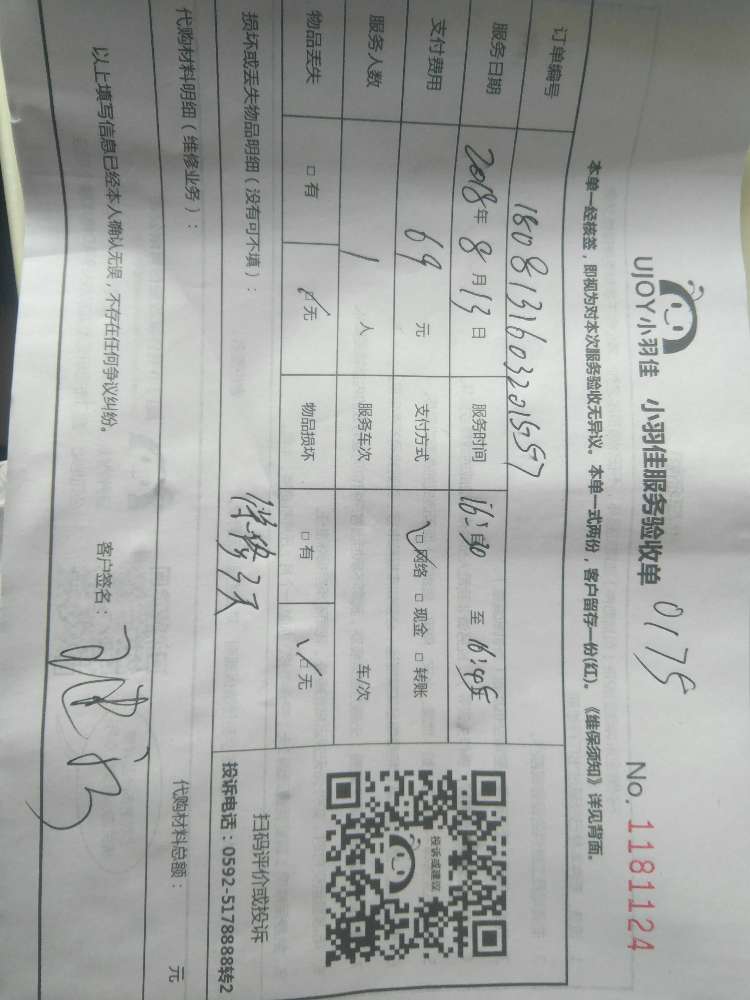 UJOY小羽佳 小羽佳服务验收单 0175 No. 1181124
本单一经核签，即视为对本次服务验收无异议。本单一式两份，客户留存一份(红)。《维保须知》详见背面。
订单编号 18081316032015557
服务日期 2018年8月13日 服务时间 16:30 至 16:45
支付费用 69 元 支付方式 □网络 □现金 □转账
服务人数 1 人 服务车次 车/次
物品丢失 □有 □无 物品损坏 □有 □无
投诉或建议
扫码评价或投诉
投诉电话：0592-5178888转2
损坏或丢失物品明细（没有可不填）：
保修3天
代购材料明细（维修业务）： 代购材料总额： 元
以上填写信息已经本人确认无误，不存在任何争议纠纷。 客户签名：